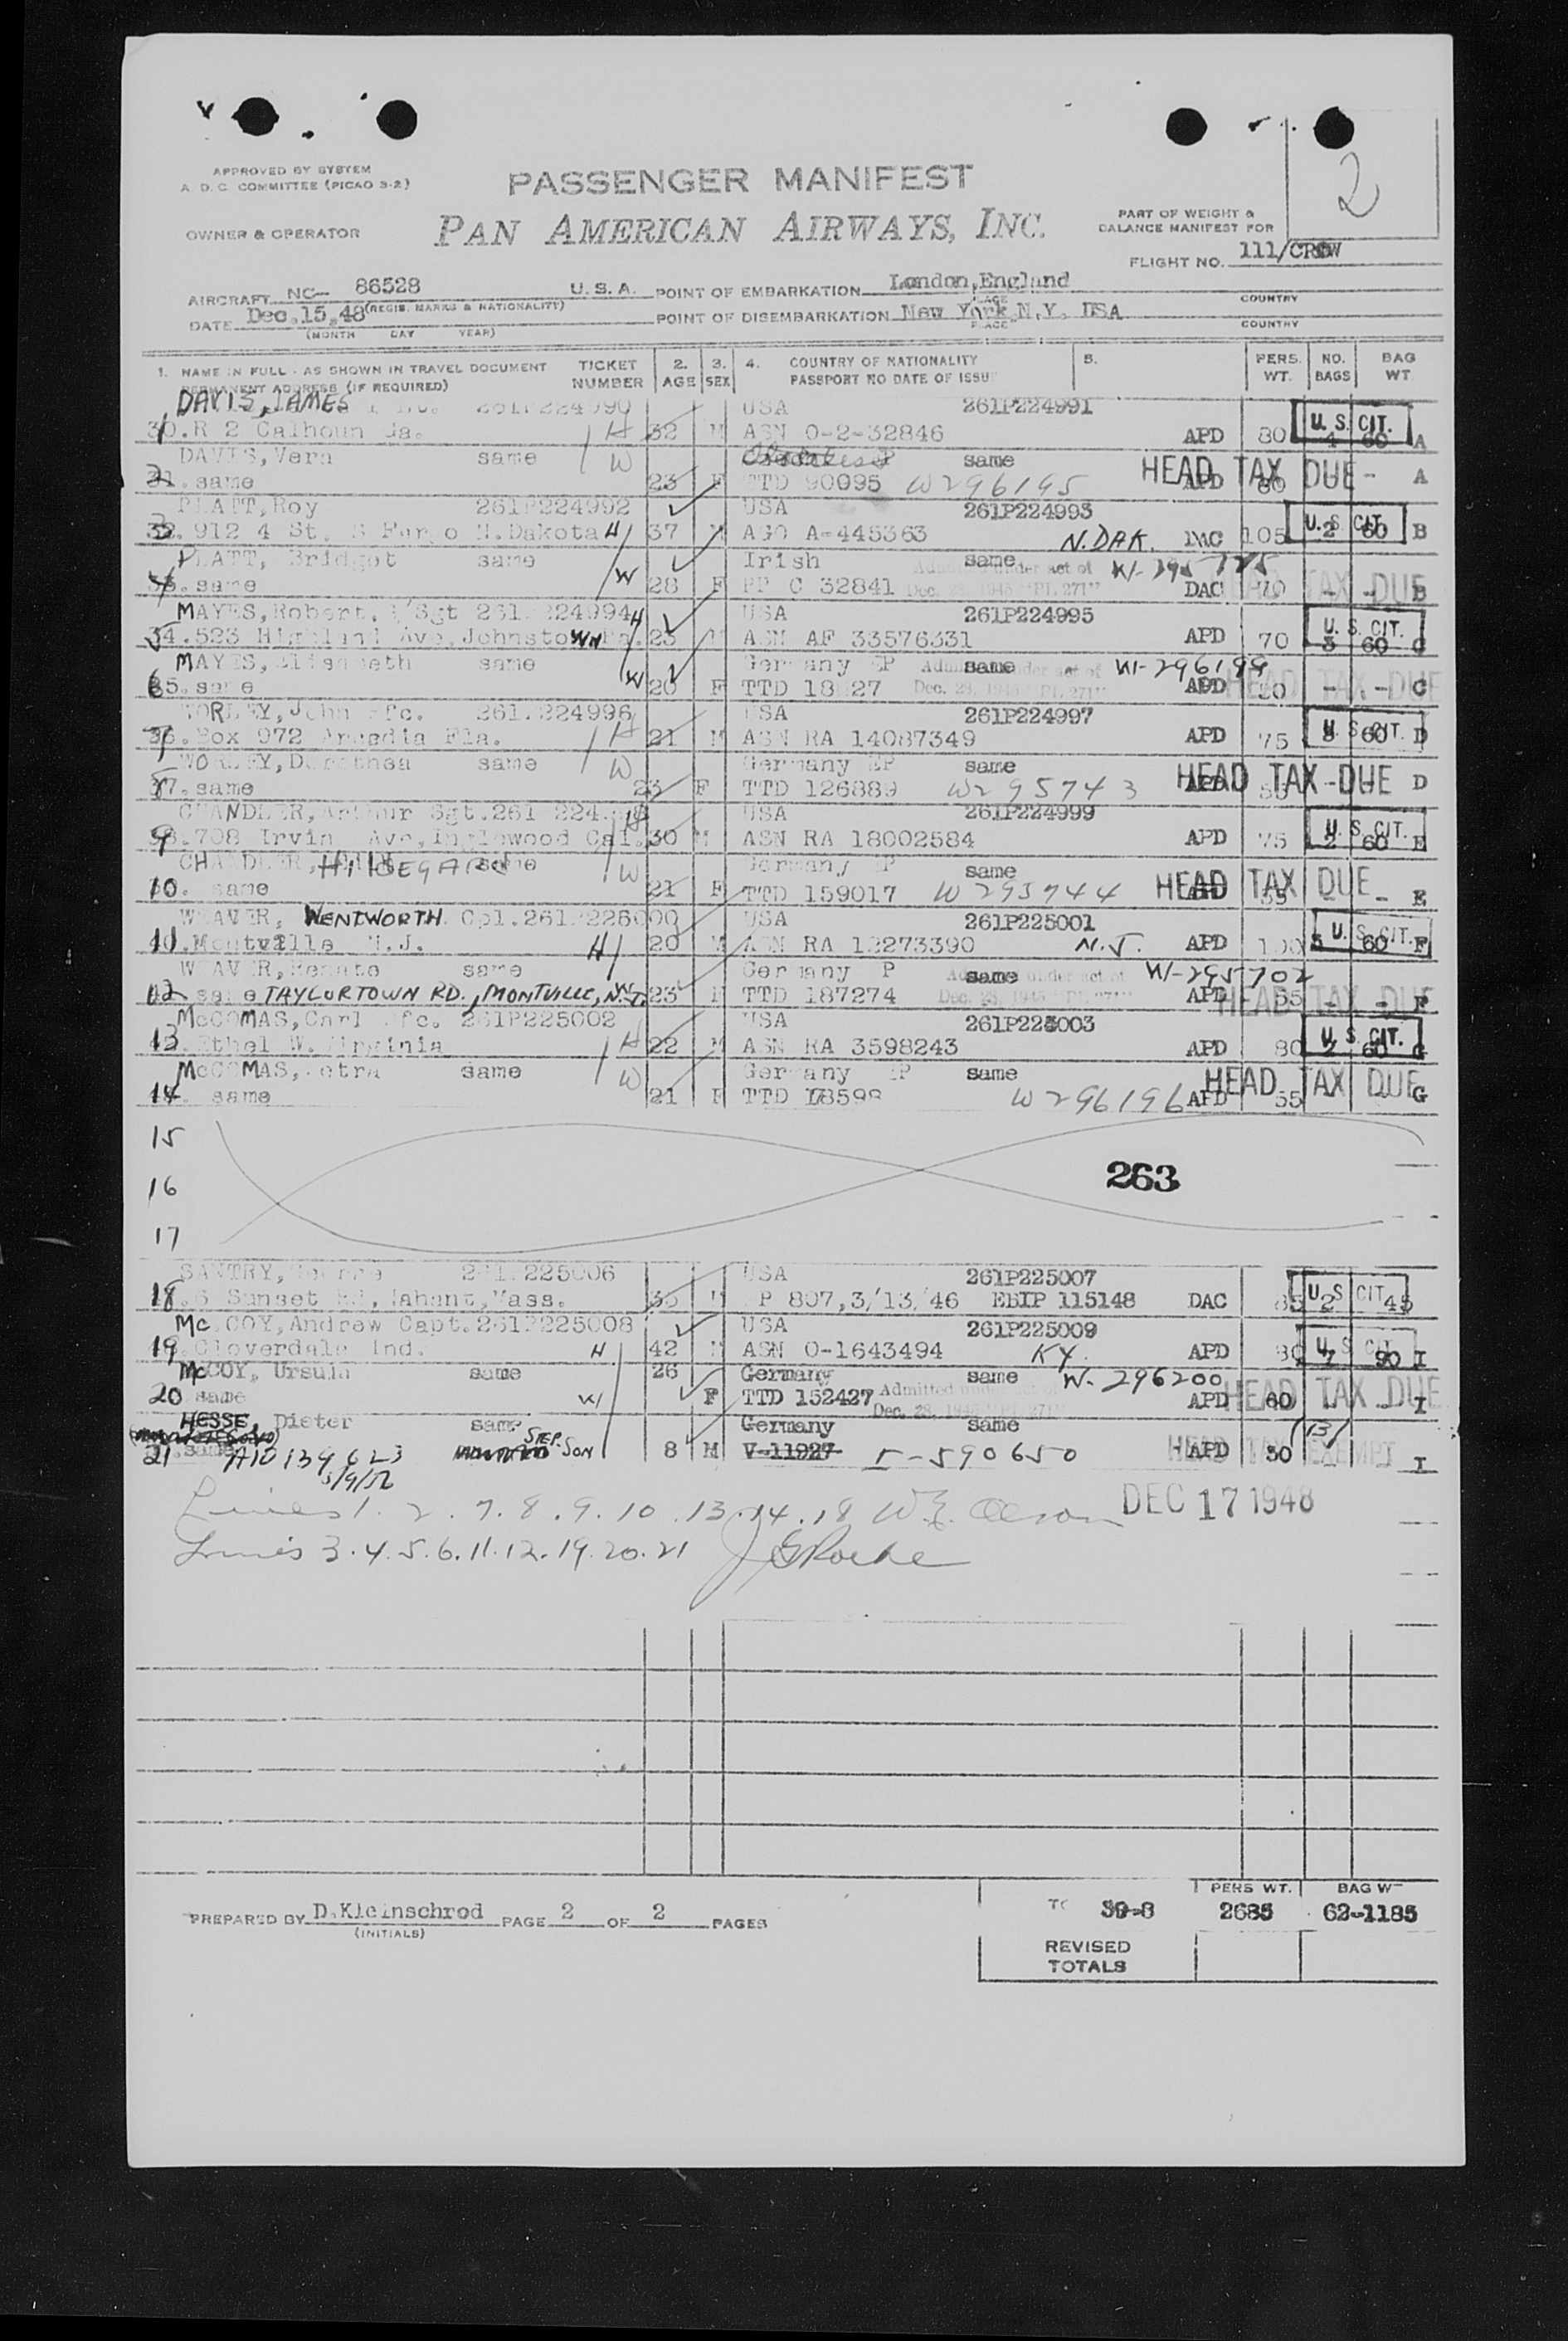 2
APPROVED BY SYSTEM
A. D. C. COMMITTEE (PICAO 3-2)
PASSENGER MANIFEST
OWNER & OPERATOR
PAN AMERICAN AIRWAYS, INC.
PART OF WEIGHT &
BALANCE MANIFEST FOR
FLIGHT NO. 111/CREW
AIRCRAFT NC- 86528 U. S. A. POINT OF EMBARKATION London,England
(REGIS. MARKS & NATIONALITY) PLACE COUNTRY
DATE Dec.15,48 POINT OF DISEMBARKATION New York N.Y. USA
(MONTH DAY YEAR) PLACE COUNTRY
1. NAME IN FULL - AS SHOWN IN TRAVEL DOCUMENT TICKET 2. 3. 4. COUNTRY OF NATIONALITY 5. PERS. NO. BAG
PERMANENT ADDRESS (IF REQUIRED) NUMBER AGE SEX PASSPORT NO DATE OF ISSUE WT. BAGS WT
DAVIS, JAMES 261P224990 USA 261P224991
30.R 2 Calhoun Ga. H 32 M ASN O-2-32846 APD 80 U. S. CIT. 4 60 A
DAVIS,Vera same W same
31.same 23 F TTD 90095 W296195 APD HEAD TAX DUE - A
PLATT,Roy 261P224992 USA 261P224993
32.912 4 St. S Fargo N.Dakota H 37 M AGO A-445363 N.DAK. DAC 105 U. S. CIT 2 60 B
PLATT, Bridget same Irish same
33.same W 28 F PP C 32841 DAC 70 HEAD TAX DUE - - B
MAYES,Robert. S/Sgt 261P224994 H USA 261P224995
34.523 Highland Ave,Johnstown 23 M ASN AF 33576331 APD 70 U. S. CIT. 3 60 C
MAYES,Elisabeth same Germany same W-296199
35.same W 20 F TTD APD HEAD TAX DUE - - C
WORLEY,John Pfc. 261P224996 USA 261P224997
36.Box 972 Arcadia Fla. H 21 M ASN RA 14087349 APD 75 U. S. CIT. 60 D
WORLEY,Dorothea same W Germany same
37.same 23 F TTD 126889 W295743 HEAD TAX DUE D
CHANDLER,Arthur Sgt.261 224 USA 261P224999
38.708 Irvin Ave,Inglewood Cal. 30 M ASN RA 18002584 APD 75 U. S. CIT. 2 60 E
CHANDLER, HILDEGARD same W Germany same
10. same 21 F TTD 159017 W295744 HEAD TAX DUE - E
WEAVER, WENTWORTH Cpl.261P225000 USA 261P225001
11.Montville N.J. H 20 M ASN RA 12273390 N.J. APD 100 U. S. CIT. 60 F
WEAVER,Renate same Germany same W-295702
12 same TAYLORTOWN RD., MONTVILLE, N.J. W 23 F TTD 187274 APD 55 HEAD TAX DUE - - F
McCOMAS,Carl Pfc. 261P225002 USA 261P225003
13 Ethel W.Virginia H 22 M ASN RA 3598243 APD 80 U. S. CIT. 2 60 G
McCOMAS,Petra same W Germany same
14. same 21 F TTD W296196 APD 55 HEAD TAX DUE G
15
16 263
17
SANTRY, 261P225006 USA 261P225007
18.6 Sunset Rd,Nahant,Mass. M PP 807,3/13/46 EBIP 115148 DAC 85 U. S. CIT 2 45
McCOY,Andrew Capt.261P225008 USA 261P225009
19.Cloverdale Ind. H 42 M ASN O-1643494 KY. APD 80 U. S. CIT 90 I
McCOY, Ursula same 26 Germany same W-296200
20 same W F TTD 152427 Admitted under act of Dec. 28, 1945 "PL 271" APD 60 HEAD TAX DUE - I
HESSE, Dieter same STEP-SON Germany same (13)
21.same A10139623 8 M V-11927 I-590650 APD 30 HEAD TAX EXEMPT I
5/9/52
Lines 1. 2. 7. 8. 9. 10. 13. 14. 18 DEC 17 1948
Lines 3. 4. 5. 6. 11. 12. 19. 20. 21
PREPARED BY D.Kleinschrod PAGE 2 OF 2 PAGES
(INITIALS)
PERS WT. BAG W
39-8 2685 62-1185
REVISED
TOTALS